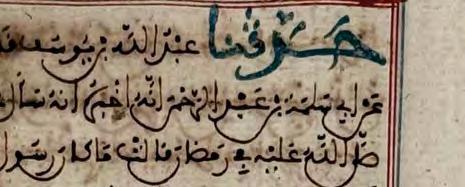 حدثنا عبد الله بن يوسف قا
عن ابي سلمة بن عبد الرحمن انه اخبره انه سال
صلى الله عليه في رمضان فقالت ما كان رسول